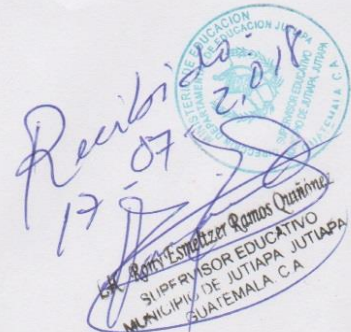 MINISTERIO DE EDUCACION
DEPARTAMENTAL DE EDUCACION JUTIAPA
SUPERVISOR EDUCATIVO
DE JUTIAPA, JUTIAPA
GUATEMALA C.A.
Recibido:
17 07 2,018
Rony Esmeltzer Ramos Quiñónez
SUPERVISOR EDUCATIVO
MUNICIPIO DE JUTIAPA JUTIAPA
GUATEMALA. C A